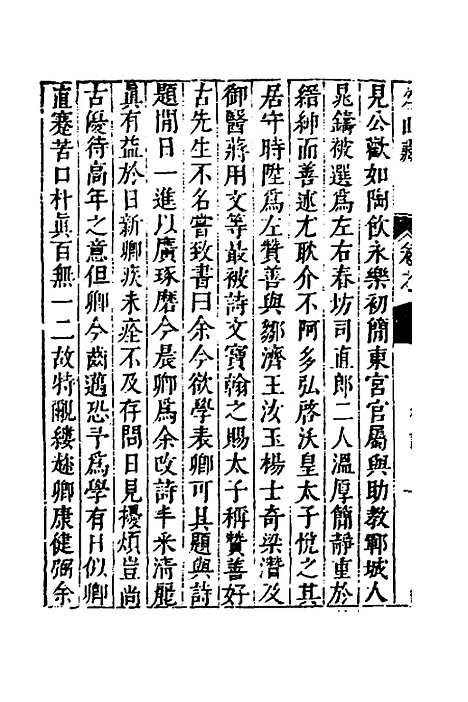 名山藏
卷之
見公歡如陶飲永樂初簡東宮官屬與助教鄆城人
晁鑄被選為左右春坊司直郎二人溫厚簡靜重於
縉紳而善述尤耿介不阿多弘啓沃皇太子悅之其
居守時陞為左贊善與鄒濟王汝玉楊士奇梁潛及
御醫蔣用文等最被詩文寶翰之賜太子稱贊善好
古先生不名嘗致書曰余今欲學表卿可具題與詩
題閒日一進以廣琢磨今晨卿為余改詩丰采清麗
眞有益於日新卿疾未痊不及存問日見擾煩豈尚
古優待高年之意但卿今齒邁恐予為學有日似卿
直蹇苦口朴眞百無一二故特覼縷趂卿康健弼余